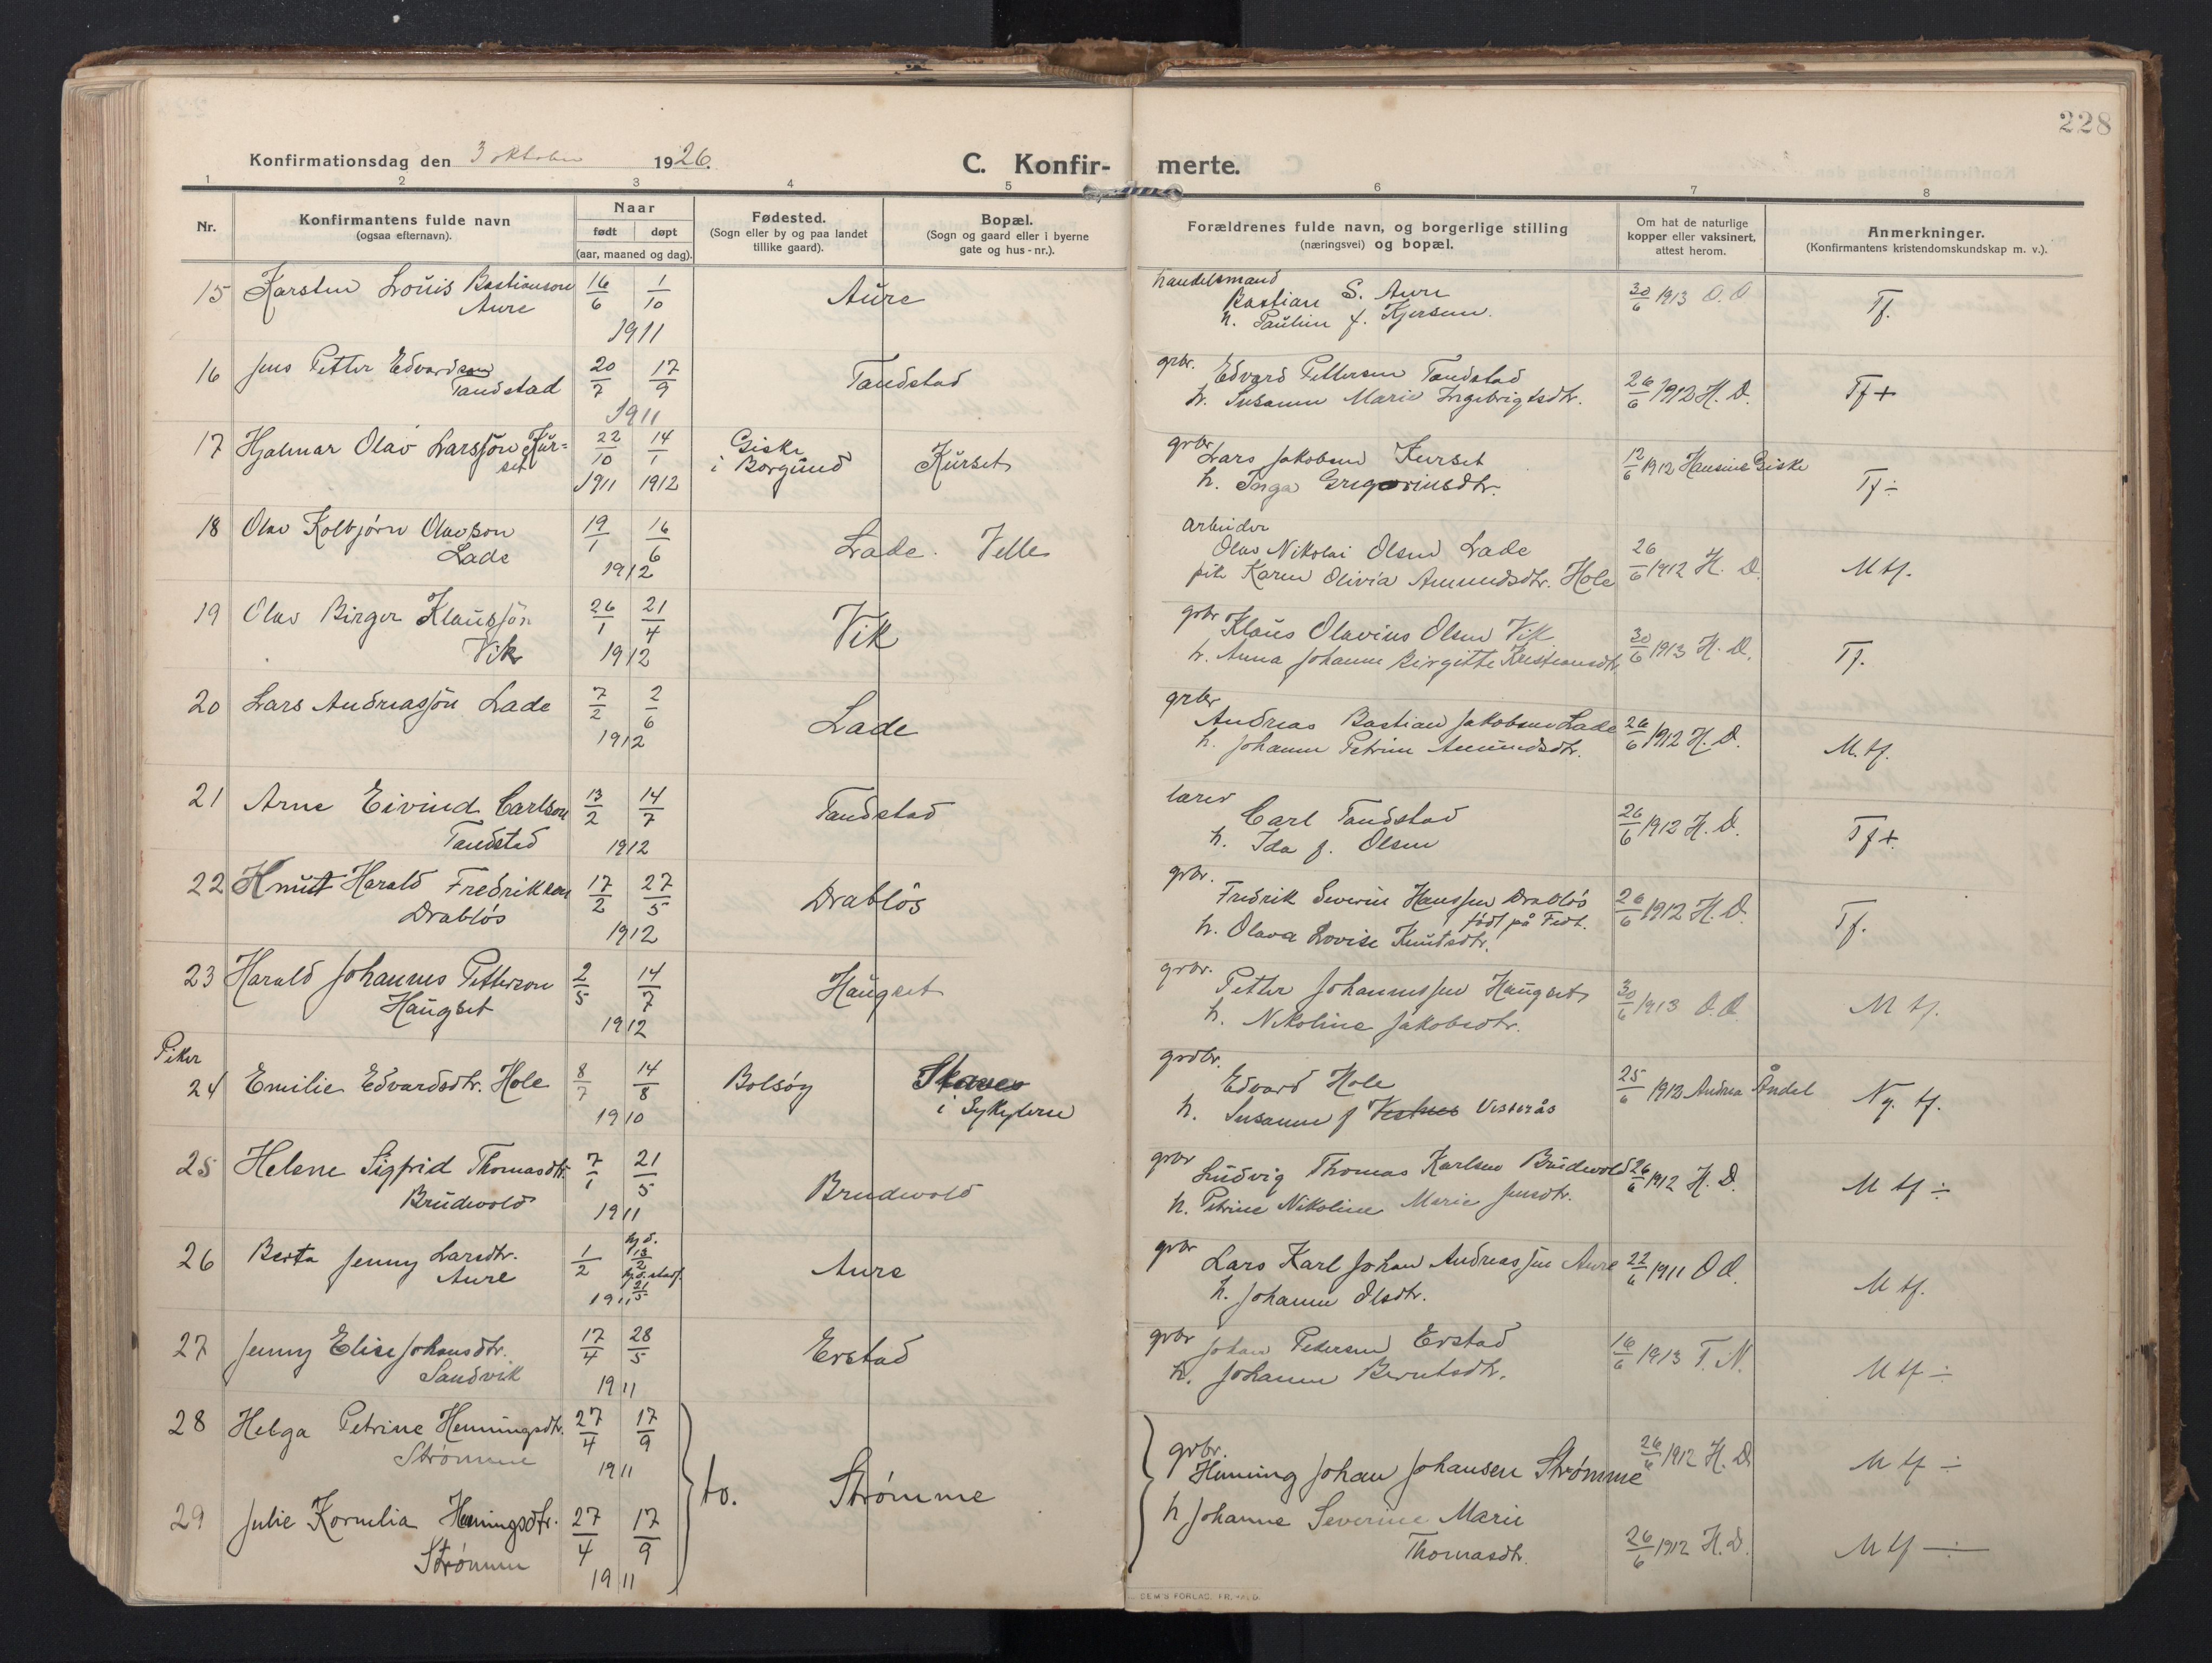 228
Konfirmationsdag den 3 oktober 1926.
C. Konfir- merte.
1 2 3 4 5 6 7 8
Nr.
Konfirmantens fulde navn
(ogsaa efternavn).
Naar
født døpt
(aar, maaned og dag).
Fødested.
(Sogn eller by og paa landet
tillike gaard).
Bopæl.
(Sogn og gaard eller i byerne
gate og hus-nr.).
Forældrenes fulde navn, og borgerlige stilling
(næringsvei) og bopæl.
Om hat de naturlige
kopper eller vaksinert,
attest herom.
Anmerkninger.
(Konfirmantens kristendomskundskap m. v.).
15 Karsten Louis Bastianson 16/6 1/10 Aure handelsmand
Aure 1911 Bastian S. Aure 30/6 1913 O. O Tf.
h. Pauline f. Kjersem.
16 Jens Petter Edvardson 20/7 17/9 Tandstad grbr. Edvard Pettersen Tandstad 26/6 1912 H. D. Tf +
Tandstad 1911 h. Susanne Marie Ingebrigtsdtr.
17 Hjalmar Olav Larssøn Kur= 22/10 14/1 Giske Kurset grbr. Lars Jakobsen Kurset 12/6 1912 Hansine Giske Tf ÷
set 1911 1912 i Borgund h. Inga Gregoriusdtr.
18 Olav Kolbjørn Olavson 19/1 16/6 Lade. Velle arbeider
Lade 1912 Olav Nikolai Olsen Lade 26/6 1912 H. D. M tf.
pike Karen Olivia Amundsdtr. Hole
19 Olav Birger Klaussøn 26/1 21/4 Vik grbr Klaus Olavius Olsen Vik 30/6 1913 H. D. Tf.
Vik 1912 h. Anna Johanne Birgitte Kristiansdtr.
20 Lars Andreassøn Lade 7/2 2/6 Lade grbr
1912 Andreas Bastian Jakobsen Lade 26/6 1912 H. D. M. tf.
h. Johanne Petrine Amundsdtr.
21 Arne Eivind Carlson 13/2 14/7 Tandstad lærer
Tandstad 1912 Carl Tandstad 26/6 1912 H. D. Tf +.
h. Ida f. Olsen
22 Knut Harald Fredrikson 17/2 27/5 Drabløs grbr.
Drabløs 1912 Fredrik Severin Hanssen Drabløs 26/6 1912 H. D. Tf.
født på Fedt.
h. Olava Lovise Knutsdtr.
23 Harald Johannes Petterson 2/5 14/7 Haugset grbr.
Haugset 1912 Petter Johannessen Haugset 30/6 1913 O. O. M tf.
h. Nikoline Jakobsdtr.
Piker
24 Emilie Edvardsdtr. Hole 8/7 14/8 Bolsøy grdbr.
1910 i Sykylven Edvard Hole 25/6 1912 Andrea Åndal Ng. tf.
h. Susanne f Vestnes Vesterås
25 Helene Sigfrid Thomasdtr. 7/1 21/5 Brudevold grbr Ludvig Thomas Karlsen Brudevold 26/6 1912 H. D. M tf ÷
Brudevold 1911 h. Petrine Nikoline Marie Jensdtr.
26 Berta Jenny Larsdtr. 1/2 hj.d. 13/2 Aure grbr Lars Karl Johan Andreassen Aure 22/6 1911 O O. M tf.
Aure hj.d. stadf. 21/5 1911 h. Johanne Olsdtr.
27 Jenny Elise Johansdtr. 17/4 28/5 Erstad grbr Johan Petersen Erstad 16/6 1913 T. N. M tf ÷
Sandvik 1911 h. Johanne Berntsdtr.
28 Helga Petrine Henningsdtr. 27/4 17/9 grbr.
Strømme 1911 to. Strømme Henning Johan Johansen Strømme 26/6 1912 H. D. M tf ÷
29 Julie Kornelia Henningsdtr. 27/4 17/9 h Johanne Severine Marie
Strømme 1911 Thomasdtr. 26/6 1912 H. D. M tf ÷